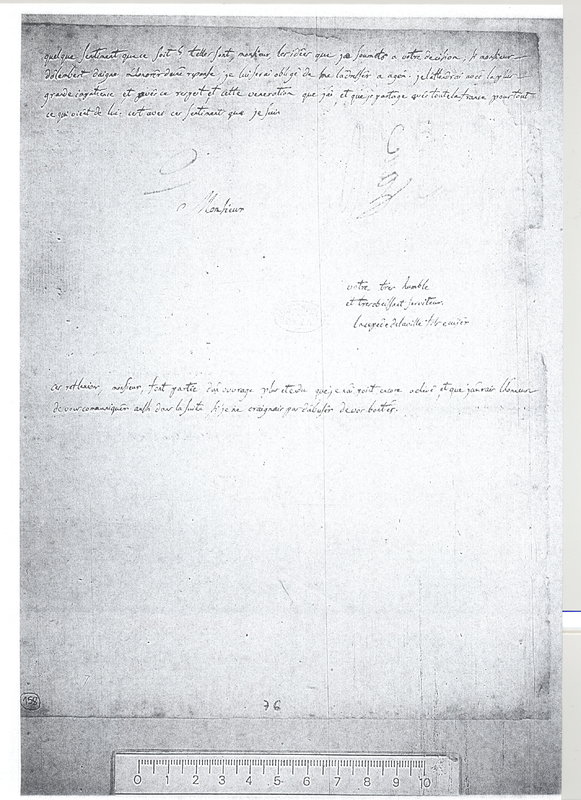 quelque sentiment que ce soit telles sont, monsieur les idées que je soumets a votre decision, si monsieur
dalembert daigne m'honorer d'une reponse, je lui serai obligé de me l'adresser a agen. je l'attendrai avec la plus
grande impatience et avec ce respect et cette veneration que j'ai et que je partage avec toute la france pour tout
ce qui vient de lui: c'est avec ces sentiment que je suis
Monsieur
votre tres humble
et tres obeissant serviteur.
lacepede delaville
ces reflexions, monsieur, font partie d'un ouvrage plus etendu que je n'ai point encore achevé, et que j'aurais l'honneur
de vous communiquer aussi dans la suite si je ne craignais pas d'abuser de vos bontés.
158
76
0 1 2 3 4 5 6 7 8 9 10